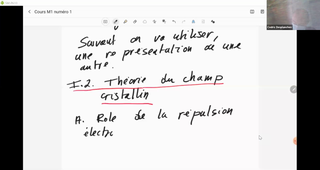 Cours M1 numéro 1
Souvent on va utiliser,
une représentation ou une
autre.
I.2. Théorie du champ
cristallin
A. Role de la répulsion
électr